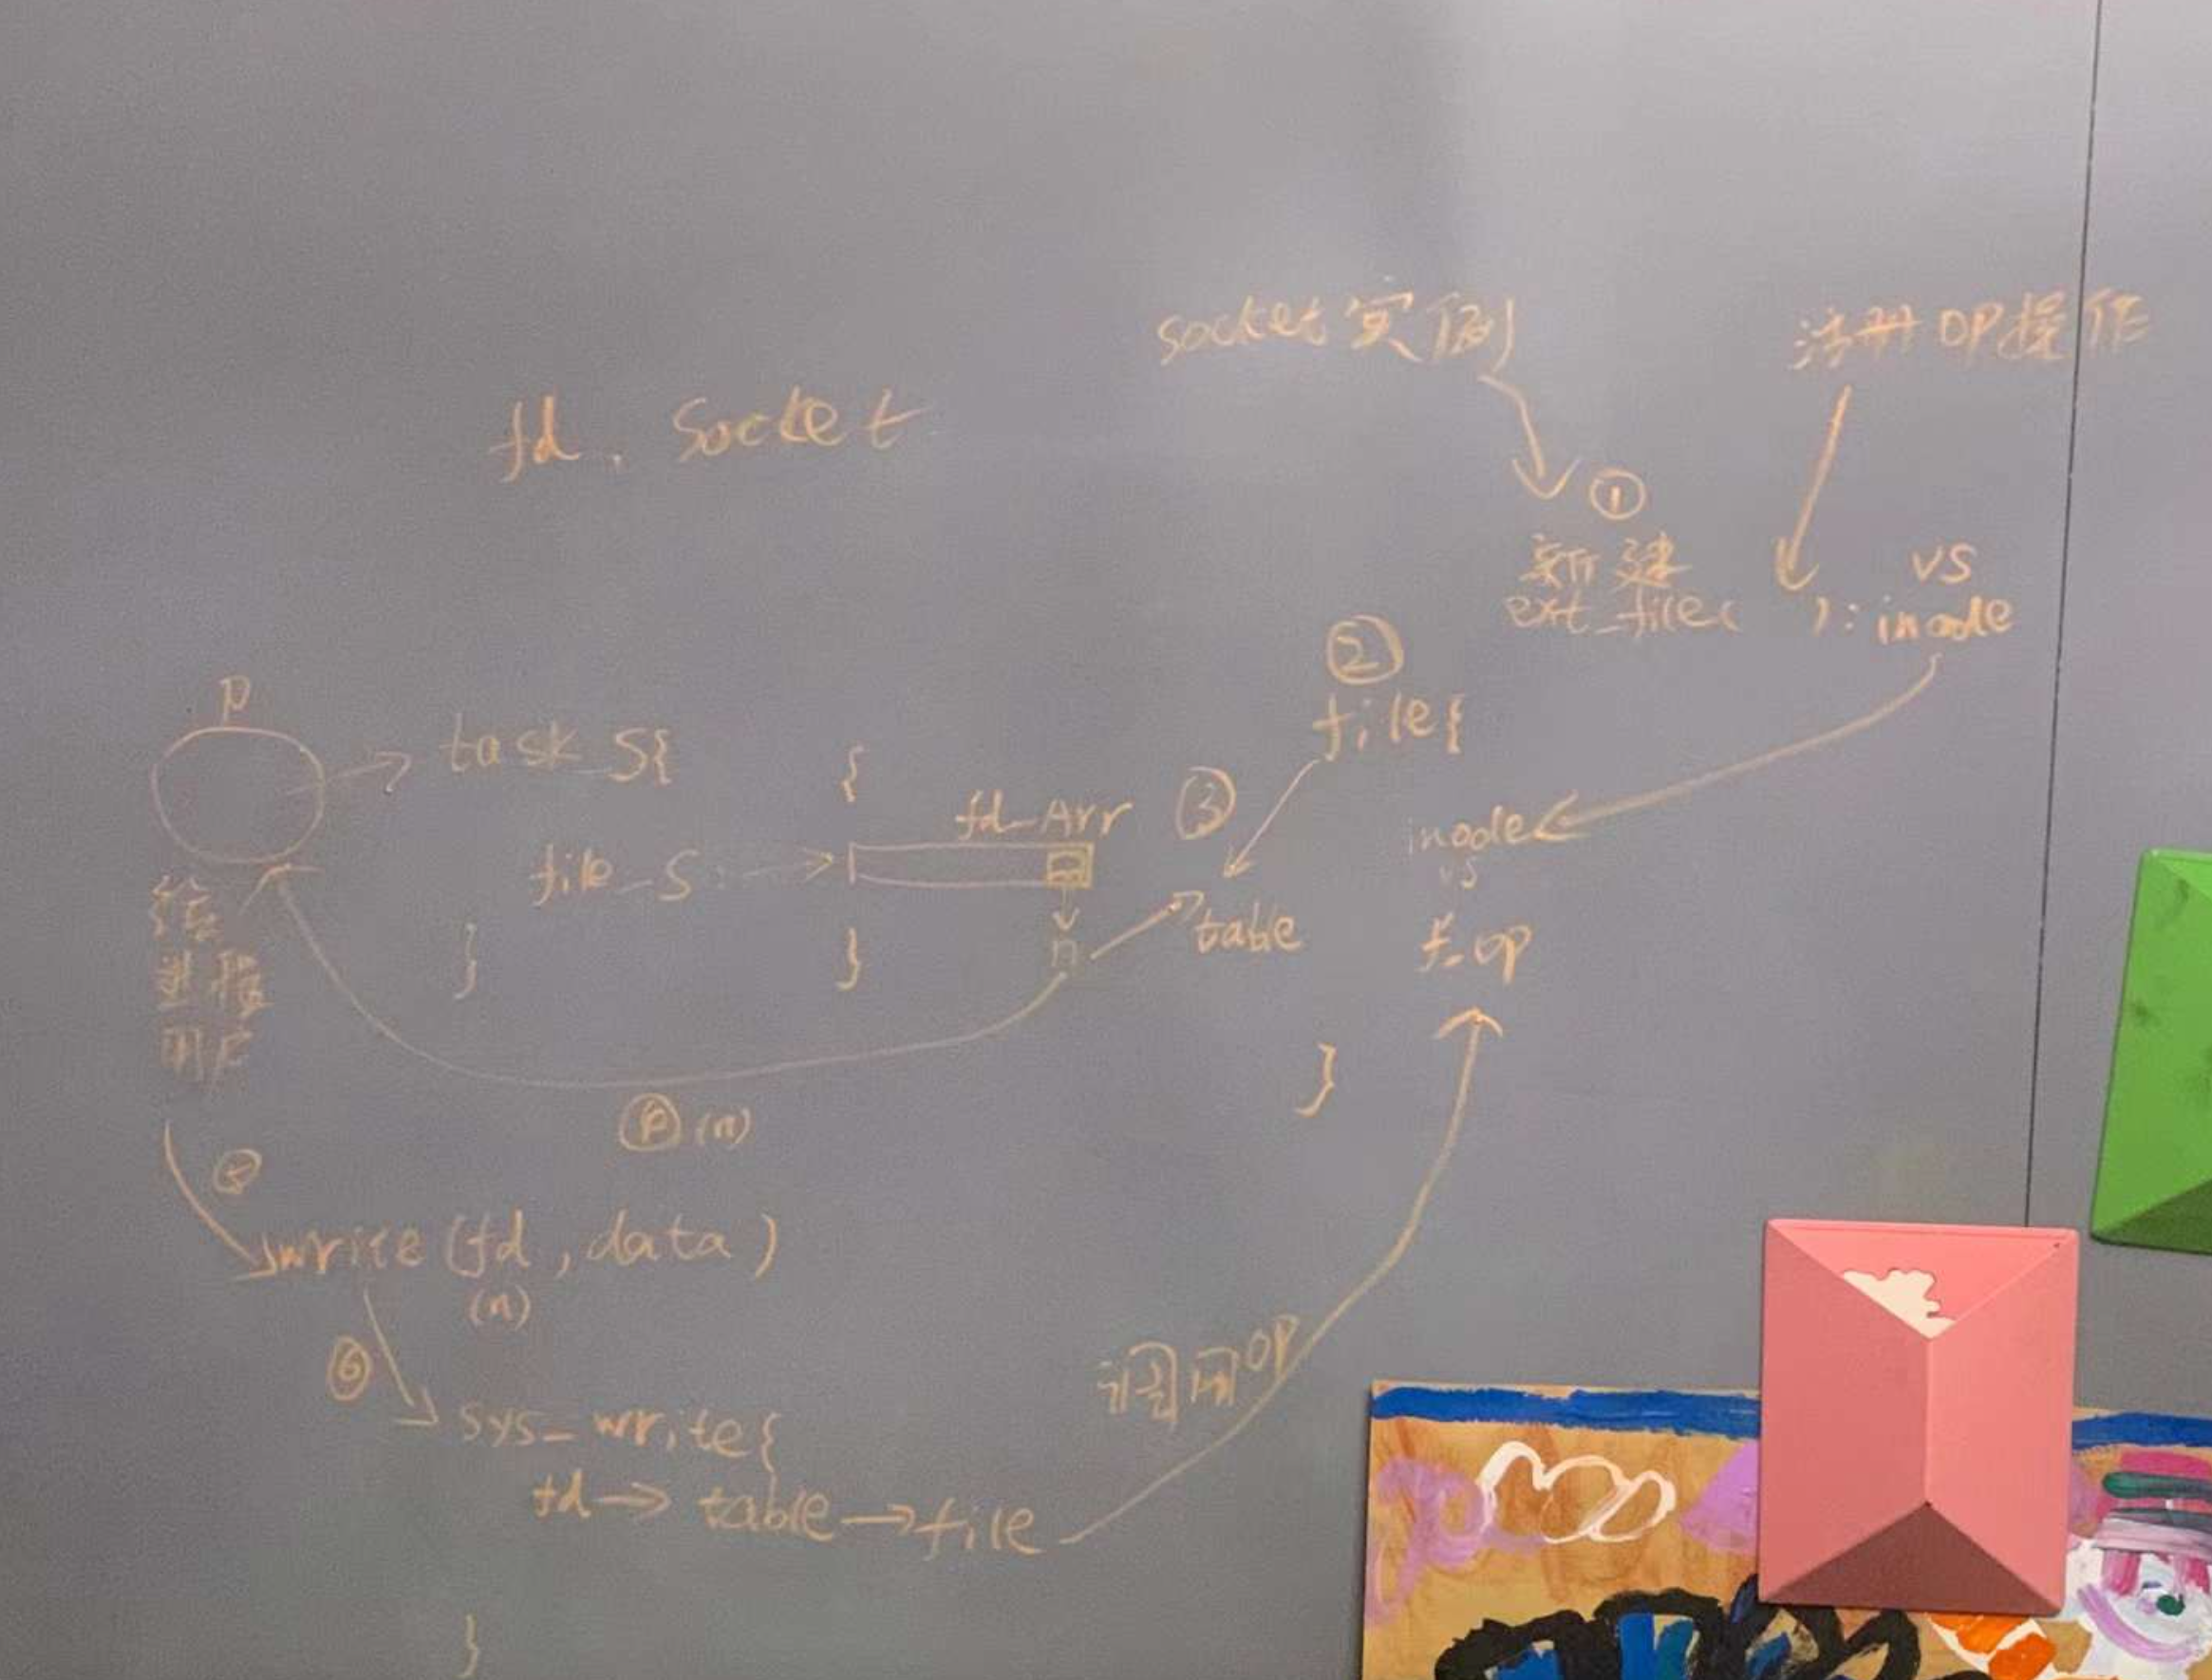 socket实例
注册OP操作
fd, Socket
①
新建
vs
ext_file( ): inode
②
file{
P
task_S{
{
fd_Arr
③
inode
vs
file_S
table
f_op
n
给
进程
用户
}
}
}
(n)
write(fd, data)
(n)
⑥
调用OP
sys_write{
fd→table→file
}